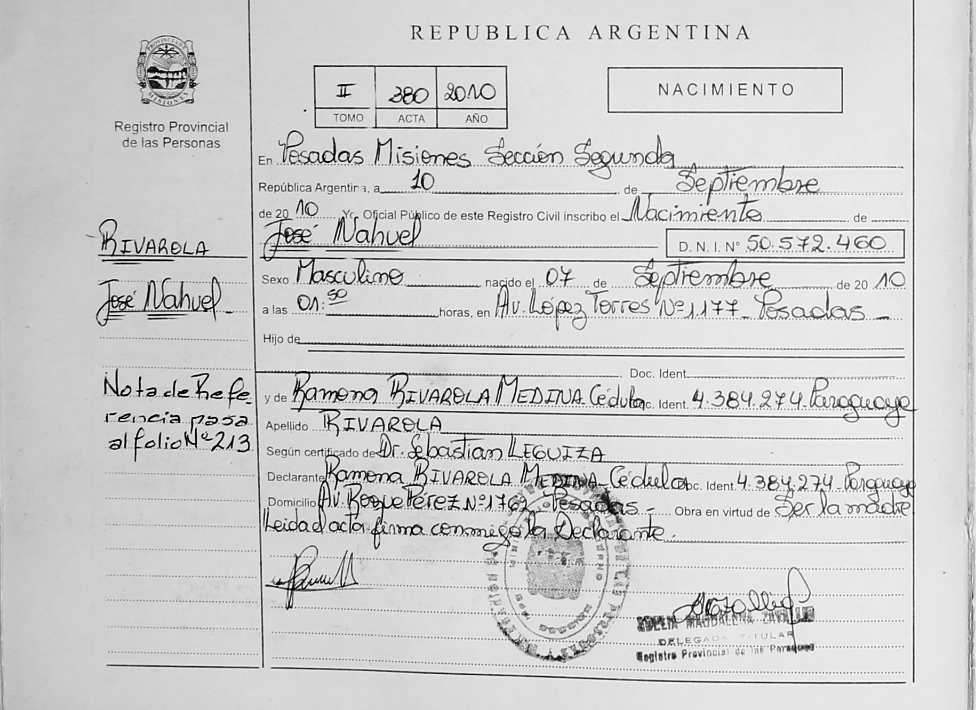 REPUBLICA ARGENTINA
PROVINCIA DE
MISIONES
Registro Provincial
de las Personas
II 380 2010
TOMO ACTA AÑO
NACIMIENTO
En Posadas Misiones Sección Segunda
República Argentina, a 10 de Septiembre
de 20 10 Yo Oficial Público de este Registro Civil inscribo el Nacimiento de
José Nahuel D.N.I. Nº 50.572.460
RIVAROLA
José Nahuel
Sexo Masculino nacido el 07 de Septiembre de 20 10
a las 01:50 horas, en Av. López Torres Nº 1.177 - Posadas -
Hijo de
Doc. Ident.
Nota de Refe
rencia pasa
al folio Nº 213
y de Ramona RIVAROLA MEDINA Cédula Doc. Ident. 4.384.274 Paraguaya
Apellido RIVAROLA
Según certificado de Dr. Sebastian LEGUIZA
Declarante Ramona RIVAROLA MEDINA - Cédula Doc. Ident. 4.384.274 Paraguaya
Domicilio Av. Roque Pérez Nº 1762 - Posadas - Obra en virtud de Ser la madre
Leída el acta firma conmigo la Declarante.
MAGDALENA
DELEGADA TITULAR
Registro Provincial de las Personas